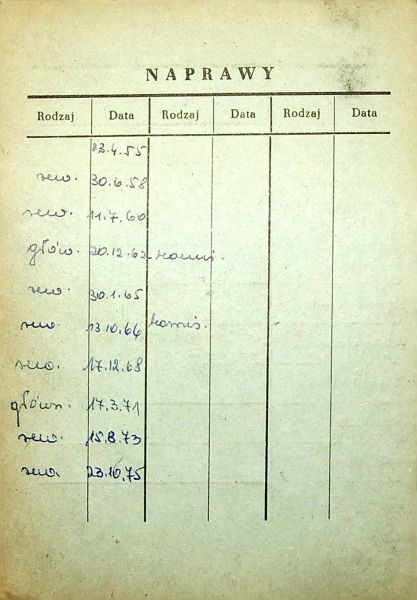 NAPRAWY
Rodzaj Data Rodzaj Data Rodzaj Data
13.4.55
rew. 30.6.58
rew. 11.7.60
głów. 20.12.62
rew. 30.1.65
rew. 13.10.66
rew. 17.12.68
główn. 17.3.71
rew. 15.8.73
rew. 23.10.75